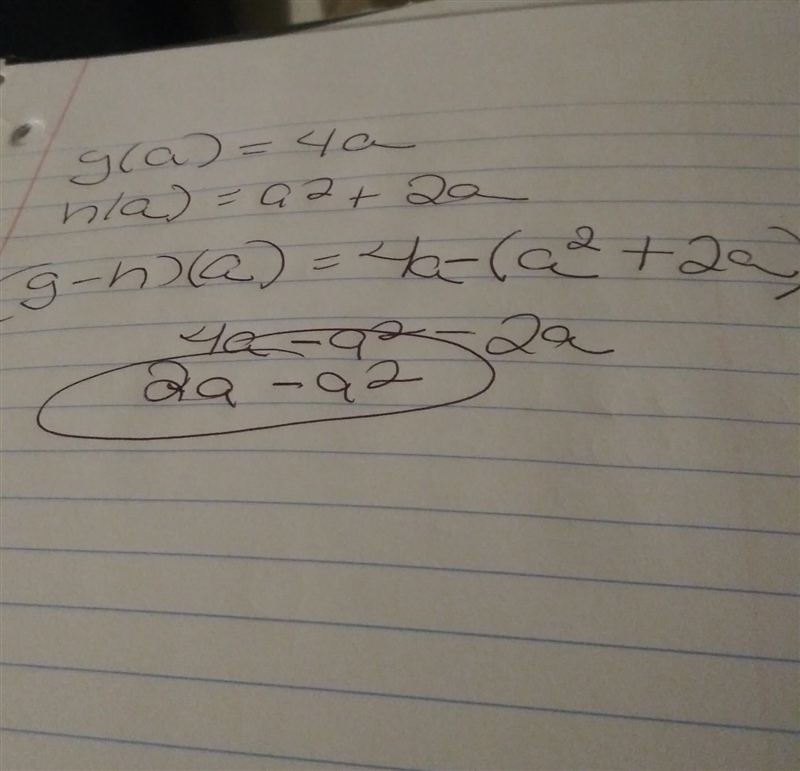 g(a) = 4a
n(a) = a2 + 2a
(g-n)(a) = 4a-(a² + 2a)
4a - a2 - 2a
2a - a2